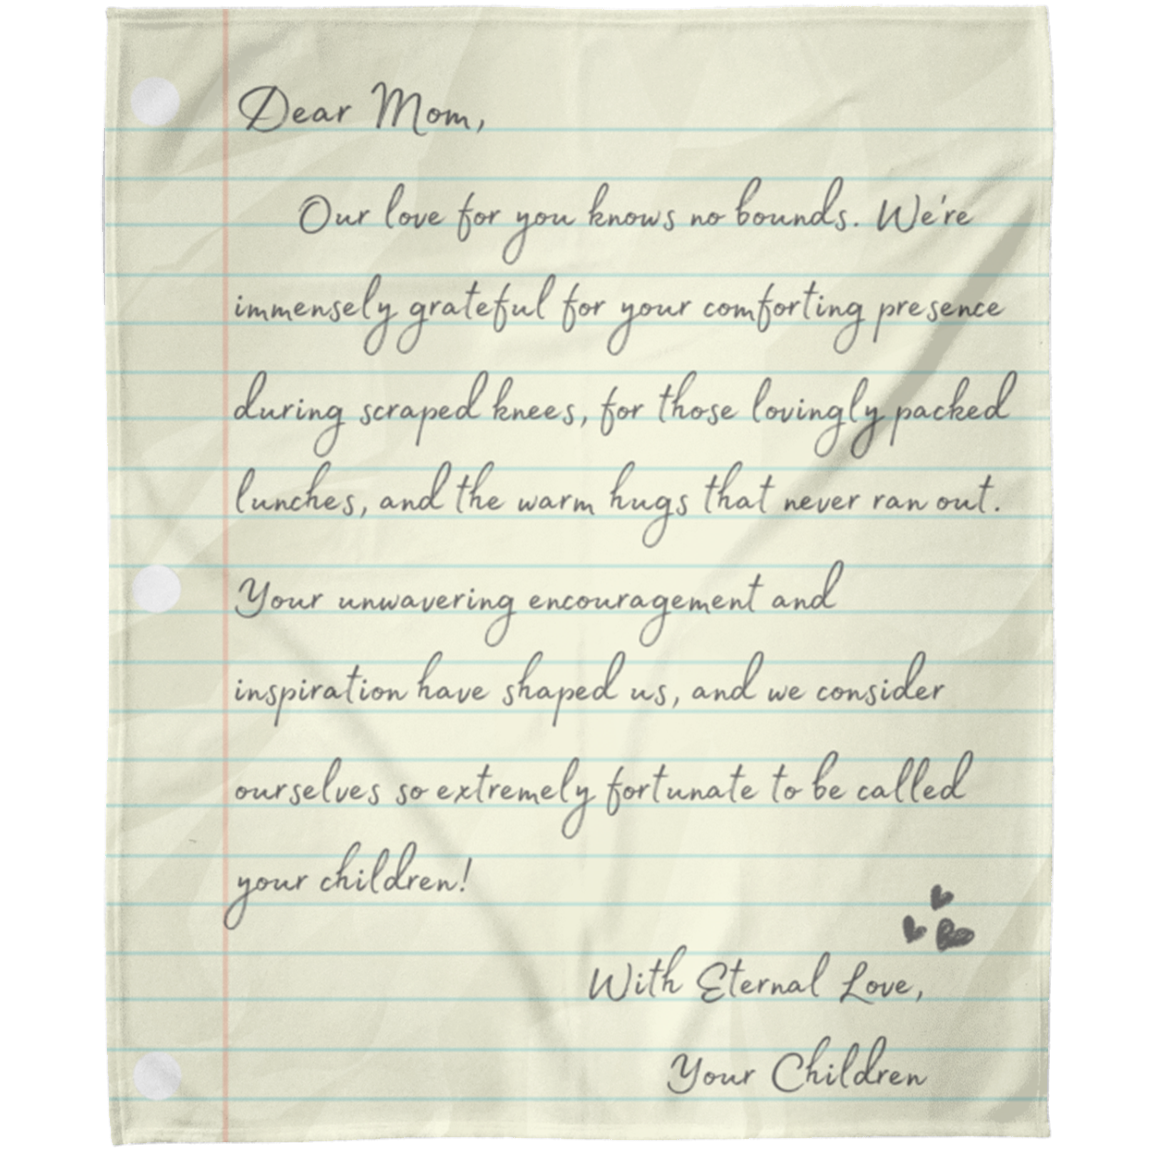 Dear Mom,
Our love for you knows no bounds. We're
immensely grateful for your comforting presence
during scraped knees, for those lovingly packed
lunches, and the warm hugs that never ran out.
Your unwavering encouragement and
inspiration have shaped us, and we consider
ourselves so extremely fortunate to be called
your children!
With Eternal Love,
Your Children